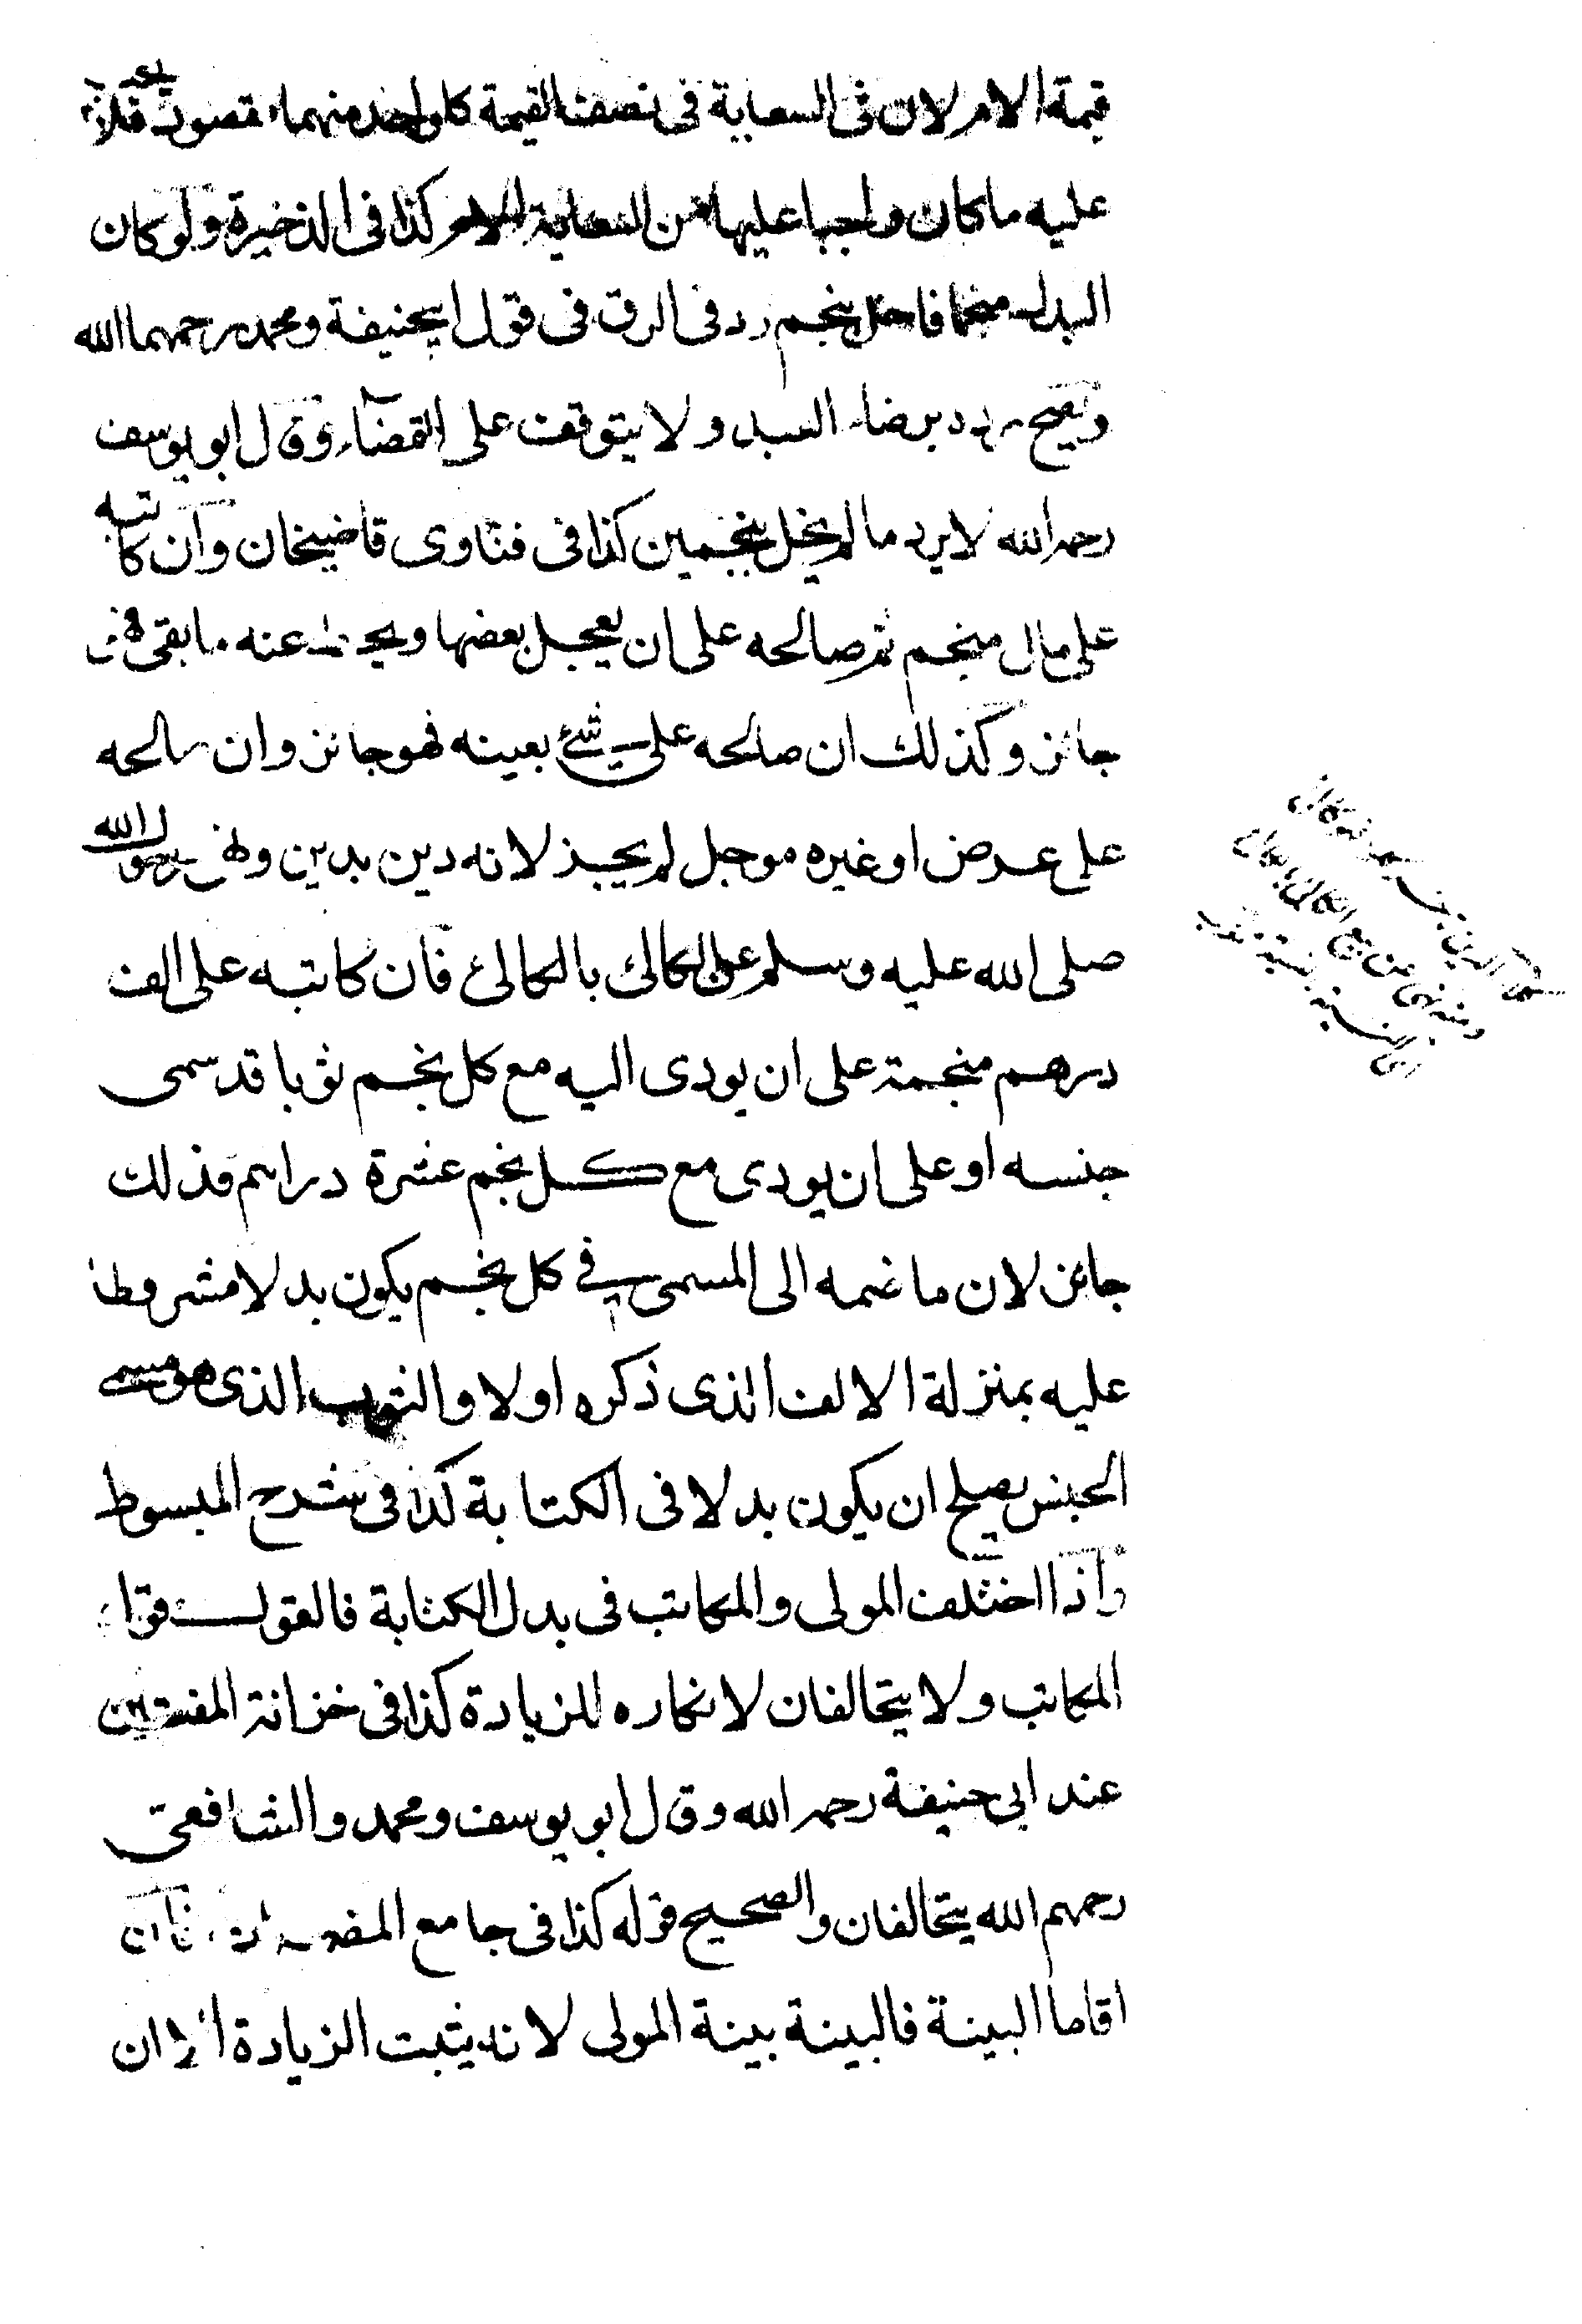 قيمة الام لان فى السعاية فى نصف القيمة كل واحد منهما مقصود فلا يجب
عليه ما كان واجبا عليها من السعاية الام كذا فى الذخيرة ولو كان
البدل منجما فاخل بنجم رد فى الرق فى قول ابيحنيفة ومحمد رحمهما الله
ويصح رده برضاء السيد ولا يتوقف على القضاء وقال ابو يوسف
رحمه الله لا يرد ما لم يخل بنجمين كذا فى فتاوى قاضيخان وان كاتبه
على مال منجم ثم صالحه على ان يعجل بعضها ويحط عنه ما بقى فهو
جائز وكذلك ان صالحه على شئ بعينه فهو جائز وان صالحه
على عرض او غيره موجل لم يجز لانه دين بدين ونهى رسول الله
صلى الله عليه وسلم عن الكالئ بالكالئ فان كاتبه على الف
درهم منجمة على ان يودى اليه مع كل نجم ثوبا قد سمى
جنسه او على ان يودى مع كل نجم عشرة دراهم فذلك
جائز لان ما ضمه الى المسمى فى كل نجم يكون بدلا مشروطا
عليه بمنزلة الالف الذى ذكره اولا والثوب الذى هو مسمى
الجنس يصلح ان يكون بدلا فى الكتابة كذا فى شرح المبسوط
واذا اختلف المولى والمكاتب فى بدل الكتابة فالقول قول
المكاتب ولا يتحالفان لانكاره للزيادة كذا فى خزانة المفتيين
عند ابى حنيفة رحمه الله وقال ابو يوسف ومحمد والشافعى
رحمهم الله يتحالفان والصحيح قوله كذا فى جامع المضمرات فان
اقاما البينة فالبينة بينة المولى لانه يثبت الزيادة الا ان